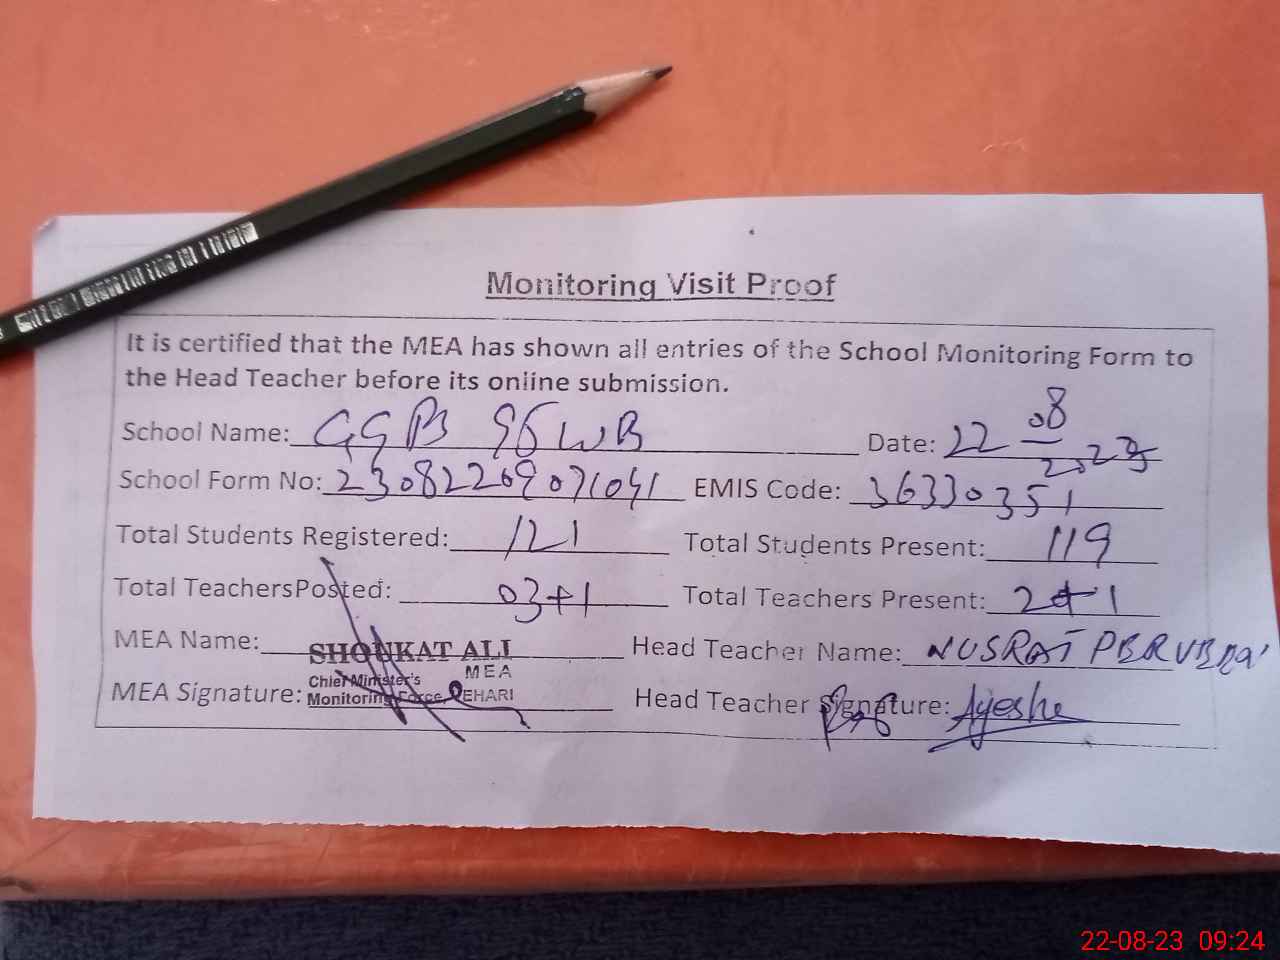 Monitoring Visit Proof
It is certified that the MEA has shown all entries of the School Monitoring Form to
the Head Teacher before its online submission.
School Name: GGPS 95 WB Date: 22 08 2023
School Form No: 230822209071041 EMIS Code: 36330351
Total Students Registered: 121 Total Students Present: 119
Total TeachersPosted: 03+1 Total Teachers Present: 2+1
MEA Name: SHOUKAT ALI Head Teacher Name: NUSRAT PERVEEN
MEA
Chief Minister's
MEA Signature: Monitoring Force VEHARI Head Teacher Signature: Ayesha
22-08-23 09:24